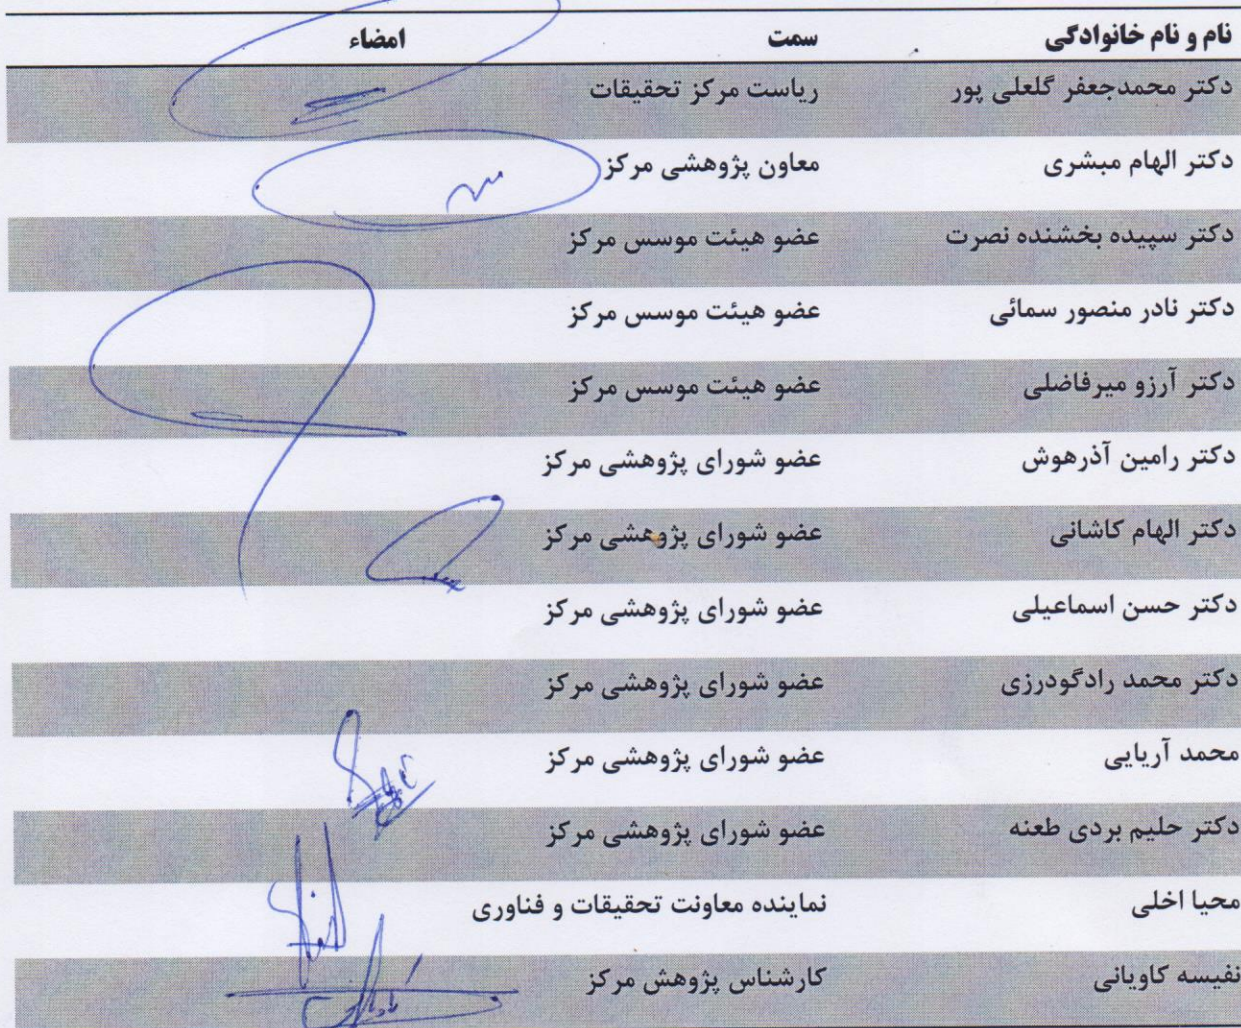 نام و نام خانوادگی سمت امضاء
دکتر محمدجعفر گلعلی پور ریاست مرکز تحقیقات
دکتر الهام مبشری معاون پژوهشی مرکز
دکتر سپیده بخشنده نصرت عضو هیئت موسس مرکز
دکتر نادر منصور سمائی عضو هیئت موسس مرکز
دکتر آرزو میرفاضلی عضو هیئت موسس مرکز
دکتر رامین آذرهوش عضو شورای پژوهشی مرکز
دکتر الهام کاشانی عضو شورای پژوهشی مرکز
دکتر حسن اسماعیلی عضو شورای پژوهشی مرکز
دکتر محمد رادگودرزی عضو شورای پژوهشی مرکز
محمد آریایی عضو شورای پژوهشی مرکز
دکتر حلیم بردی طعنه عضو شورای پژوهشی مرکز
محیا اخلی نماینده معاونت تحقیقات و فناوری
نفیسه کاویانی کارشناس پژوهش مرکز